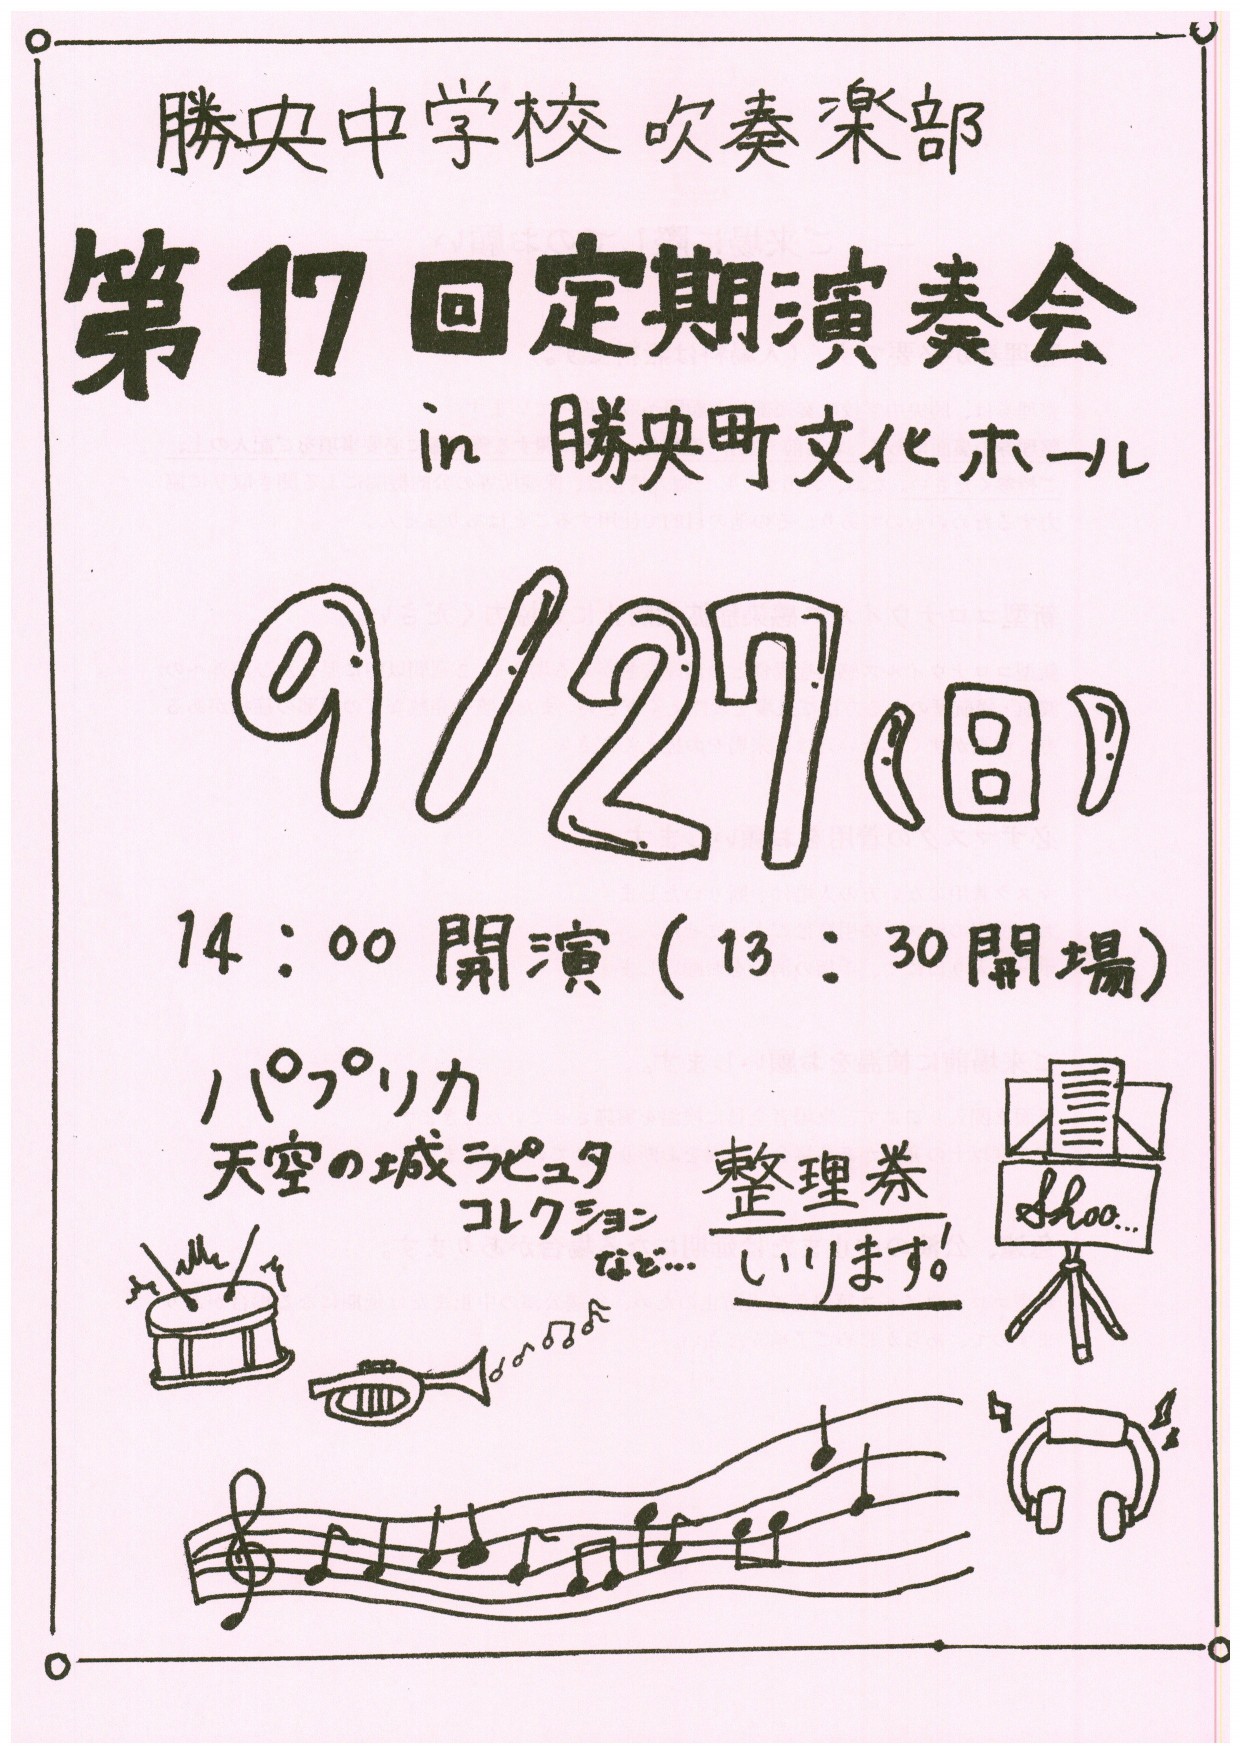 勝央中学校 吹奏楽部
第17回定期演奏会
in 勝央町文化ホール
9/27(日)
14:00 開演 (13:30開場)
パプリカ
天空の城ラピュタ
コレクション
など...
整理券
いります!
Shoo...